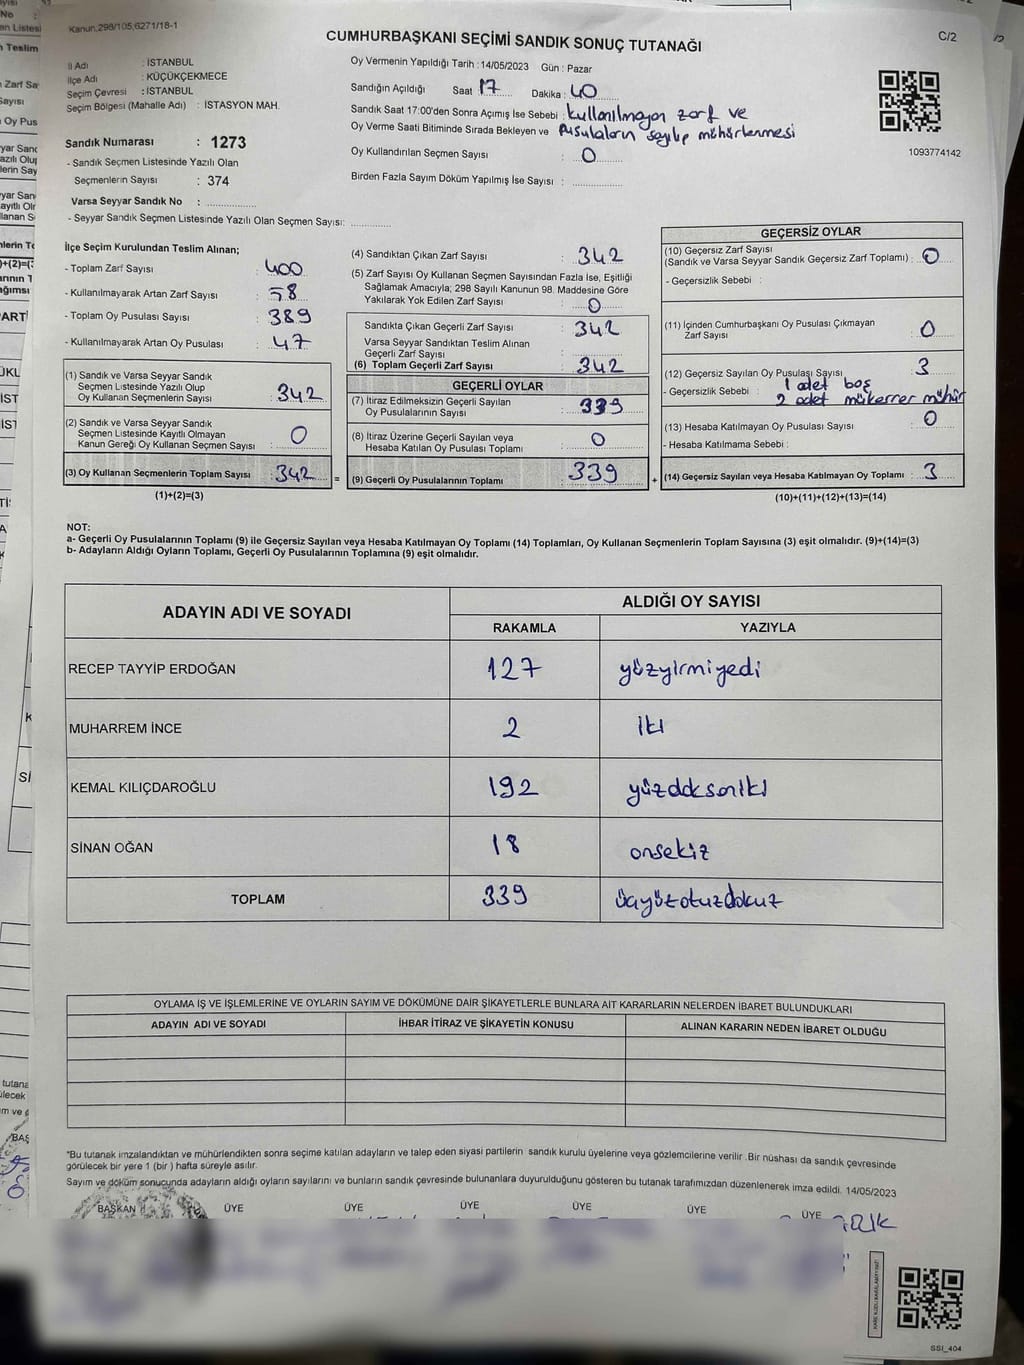 Kanun.298/105,6271/18-1
CUMHURBAŞKANI SEÇİMİ SANDIK SONUÇ TUTANAĞI
C/2
İl Adı : İSTANBUL
İlçe Adı : KÜÇÜKÇEKMECE
Seçim Çevresi : İSTANBUL
Seçim Bölgesi (Mahalle Adı) : İSTASYON MAH.
Sandık Numarası : 1273
- Sandık Seçmen Listesinde Yazılı Olan
Seçmenlerin Sayısı : 374
Varsa Seyyar Sandık No : ..............
- Seyyar Sandık Seçmen Listesinde Yazılı Olan Seçmen Sayısı: ..............
Oy Vermenin Yapıldığı Tarih : 14/05/2023 Gün : Pazar
Sandığın Açıldığı Saat : 17 Dakika : 40
Sandık Saat 17:00'den Sonra Açımış İse Sebebi : kullanılmayan zarf ve
Oy Verme Saati Bitiminde Sırada Bekleyen ve pusulaların sayılıp mühürlenmesi
Oy Kullandırılan Seçmen Sayısı : 0
Birden Fazla Sayım Döküm Yapılmış İse Sayısı : ..............
1093774142
İlçe Seçim Kurulundan Teslim Alınan;
- Toplam Zarf Sayısı : 400
- Kullanılmayarak Artan Zarf Sayısı : 58
- Toplam Oy Pusulası Sayısı : 389
- Kullanılmayarak Artan Oy Pusulası : 47
(1) Sandık ve Varsa Seyyar Sandık
Seçmen Listesinde Yazılı Olup
Oy Kullanan Seçmenlerin Sayısı : 342
(2) Sandık ve Varsa Seyyar Sandık
Seçmen Listesinde Kayıtlı Olmayan
Kanun Gereği Oy Kullanan Seçmen Sayısı : 0
(3) Oy Kullanan Seçmenlerin Toplam Sayısı : 342 =
(1)+(2)=(3)
(4) Sandıktan Çıkan Zarf Sayısı : 342
(5) Zarf Sayısı Oy Kullanan Seçmen Sayısından Fazla İse, Eşitliği
Sağlamak Amacıyla; 298 Sayılı Kanunun 98. Maddesine Göre
Yakılarak Yok Edilen Zarf Sayısı : 0
Sandıkta Çıkan Geçerli Zarf Sayısı : 342
Varsa Seyyar Sandıktan Teslim Alınan
Geçerli Zarf Sayısı : ..............
(6) Toplam Geçerli Zarf Sayısı : 342
GEÇERLİ OYLAR
(7) İtiraz Edilmeksizin Geçerli Sayılan
Oy Pusulalarının Sayısı : 339
(8) İtiraz Üzerine Geçerli Sayılan veya
Hesaba Katılan Oy Pusulası Toplamı : 0
(9) Geçerli Oy Pusulalarının Toplamı : 339 +
GEÇERSİZ OYLAR
(10) Geçersiz Zarf Sayısı
(Sandık ve Varsa Seyyar Sandık Geçersiz Zarf Toplamı) : 0
- Geçersizlik Sebebi :
(11) İçinden Cumhurbaşkanı Oy Pusulası Çıkmayan
Zarf Sayısı : 0
(12) Geçersiz Sayılan Oy Pusulası Sayısı : 3
- Geçersizlik Sebebi : 1 adet boş
2 adet mükerrer mühür
(13) Hesaba Katılmayan Oy Pusulası Sayısı : 0
- Hesaba Katılmama Sebebi :
(14) Geçersiz Sayılan veya Hesaba Katılmayan Oy Toplamı : 3
(10)+(11)+(12)+(13)=(14)
NOT:
a- Geçerli Oy Pusulalarının Toplamı (9) ile Geçersiz Sayılan veya Hesaba Katılmayan Oy Toplamı (14) Toplamları, Oy Kullanan Seçmenlerin Toplam Sayısına (3) eşit olmalıdır. (9)+(14)=(3)
b- Adayların Aldığı Oyların Toplamı, Geçerli Oy Pusulalarının Toplamına (9) eşit olmalıdır.
ADAYIN ADI VE SOYADI ALDIĞI OY SAYISI
RAKAMLA YAZIYLA
RECEP TAYYİP ERDOĞAN 127 yüzyirmiyedi
MUHARREM İNCE 2 iki
KEMAL KILIÇDAROĞLU 192 yüzdoksaniki
SİNAN OĞAN 18 onsekiz
TOPLAM 339 üçyüzotuzdokuz
OYLAMA İŞ VE İŞLEMLERİNE VE OYLARIN SAYIM VE DÖKÜMÜNE DAİR ŞİKAYETLERLE BUNLARA AİT KARARLARIN NELERDEN İBARET BULUNDUKLARI
ADAYIN ADI VE SOYADI İHBAR İTİRAZ VE ŞİKAYETİN KONUSU ALINAN KARARIN NEDEN İBARET OLDUĞU
*Bu tutanak imzalandıktan ve mühürlendikten sonra seçime katılan adayların ve talep eden siyasi partilerin sandık kurulu üyelerine veya gözlemcilerine verilir .Bir nüshası da sandık çevresinde
görülecek bir yere 1 (bir ) hafta süreyle asılır.
Sayım ve döküm sonucunda adayların aldığı oyların sayılarını ve bunların sandık çevresinde bulunanlara duyurulduğunu gösteren bu tutanak tarafımızdan düzenlenerek imza edildi. 14/05/2023
BAŞKAN ÜYE ÜYE ÜYE ÜYE ÜYE ÜYE
SSI_404